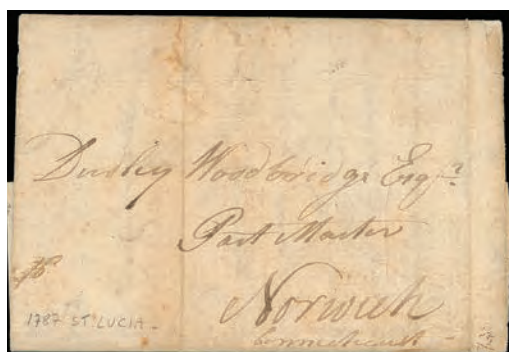 Dudley Woodbridge Esqr.
Post Master
Norwich
Connecticut
1787 ST. LUCIA -